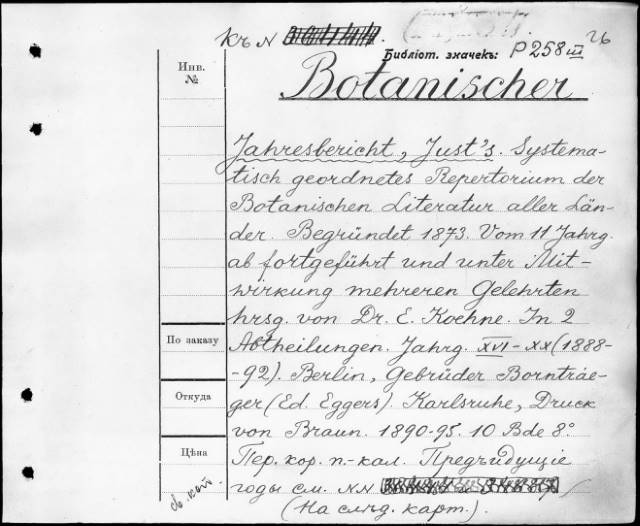 Къ N
Библіот. значекъ: P 258 III 26
Инв.
№
Botanischer
Jahresbericht, Just's. Systema-
tisch geordnetes Repertorium der
Botanischen Literatur aller Län-
der. Begründet 1873. Vom 11 Jahrg.
ab fortgeführt und unter Mit-
wirkung mehreren Gelehrten
hrsg. von Dr. E. Koehne. In 2
По заказу
Abtheilungen. Jahrg. XVI-XX (1888-
-92). Berlin, Gebrüder Borntrae-
Откуда
ger (Ed. Eggers). Karlsruhe, Druck
von Braun. 1890-95. 10 Bde 8°.
Цѣна
Пер. кор. п.-кал. Предъидущіе
годы см. NN
(На слѣд. карт.).